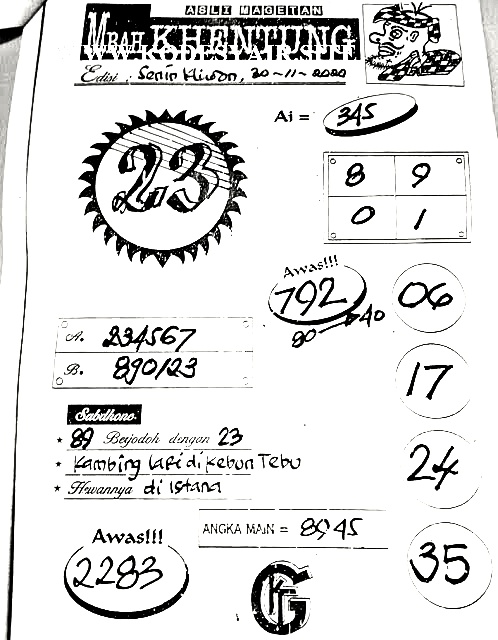 ASLI MAGETAN
MBAH KHENTUNG
WWW.KODESYAIR.SITE
Edisi : Senin Kliwon, 30-11-2020
Ai = 345
23
8 9
0 1
Awas!!!
792
80 40
06
17
24
35
A. 234567
B. 890123
Sabdhono
* 89 Berjodoh dengan 23
* Kambing lari di Kebun Tebu
* Hewannya di istana
ANGKA MAIN = 8945
Awas!!!
2283
G
KT